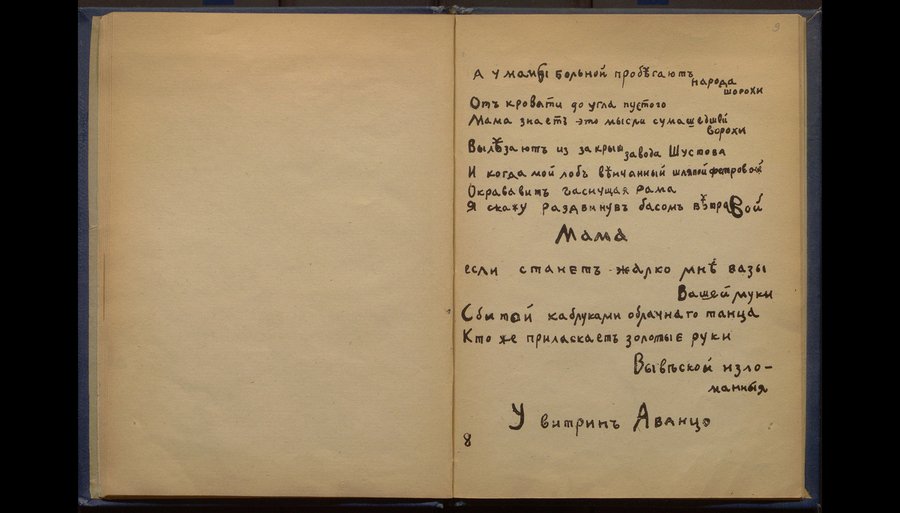 9
А у мамы больной пробѣгаютъ народа
шорохи
Отъ кровати до угла пустого
Мама знаетъ это мысли сумашедшей
ворохи
Вылѣзаютъ из за крыш завода Шустова
И когда мой лобъ вѣнчанный шляпой фетровой
Окрававитъ гаснущая рама
Я скажу раздвинувъ басомъ вѣтра вой
Мама
если станетъ жалко мнѣ вазы
Вашей муки
Сбитой каблуками облачнаго танца
Кто же приласкаетъ золотые руки
Вывѣской изло-
манныя
У витринъ Аванцо
8